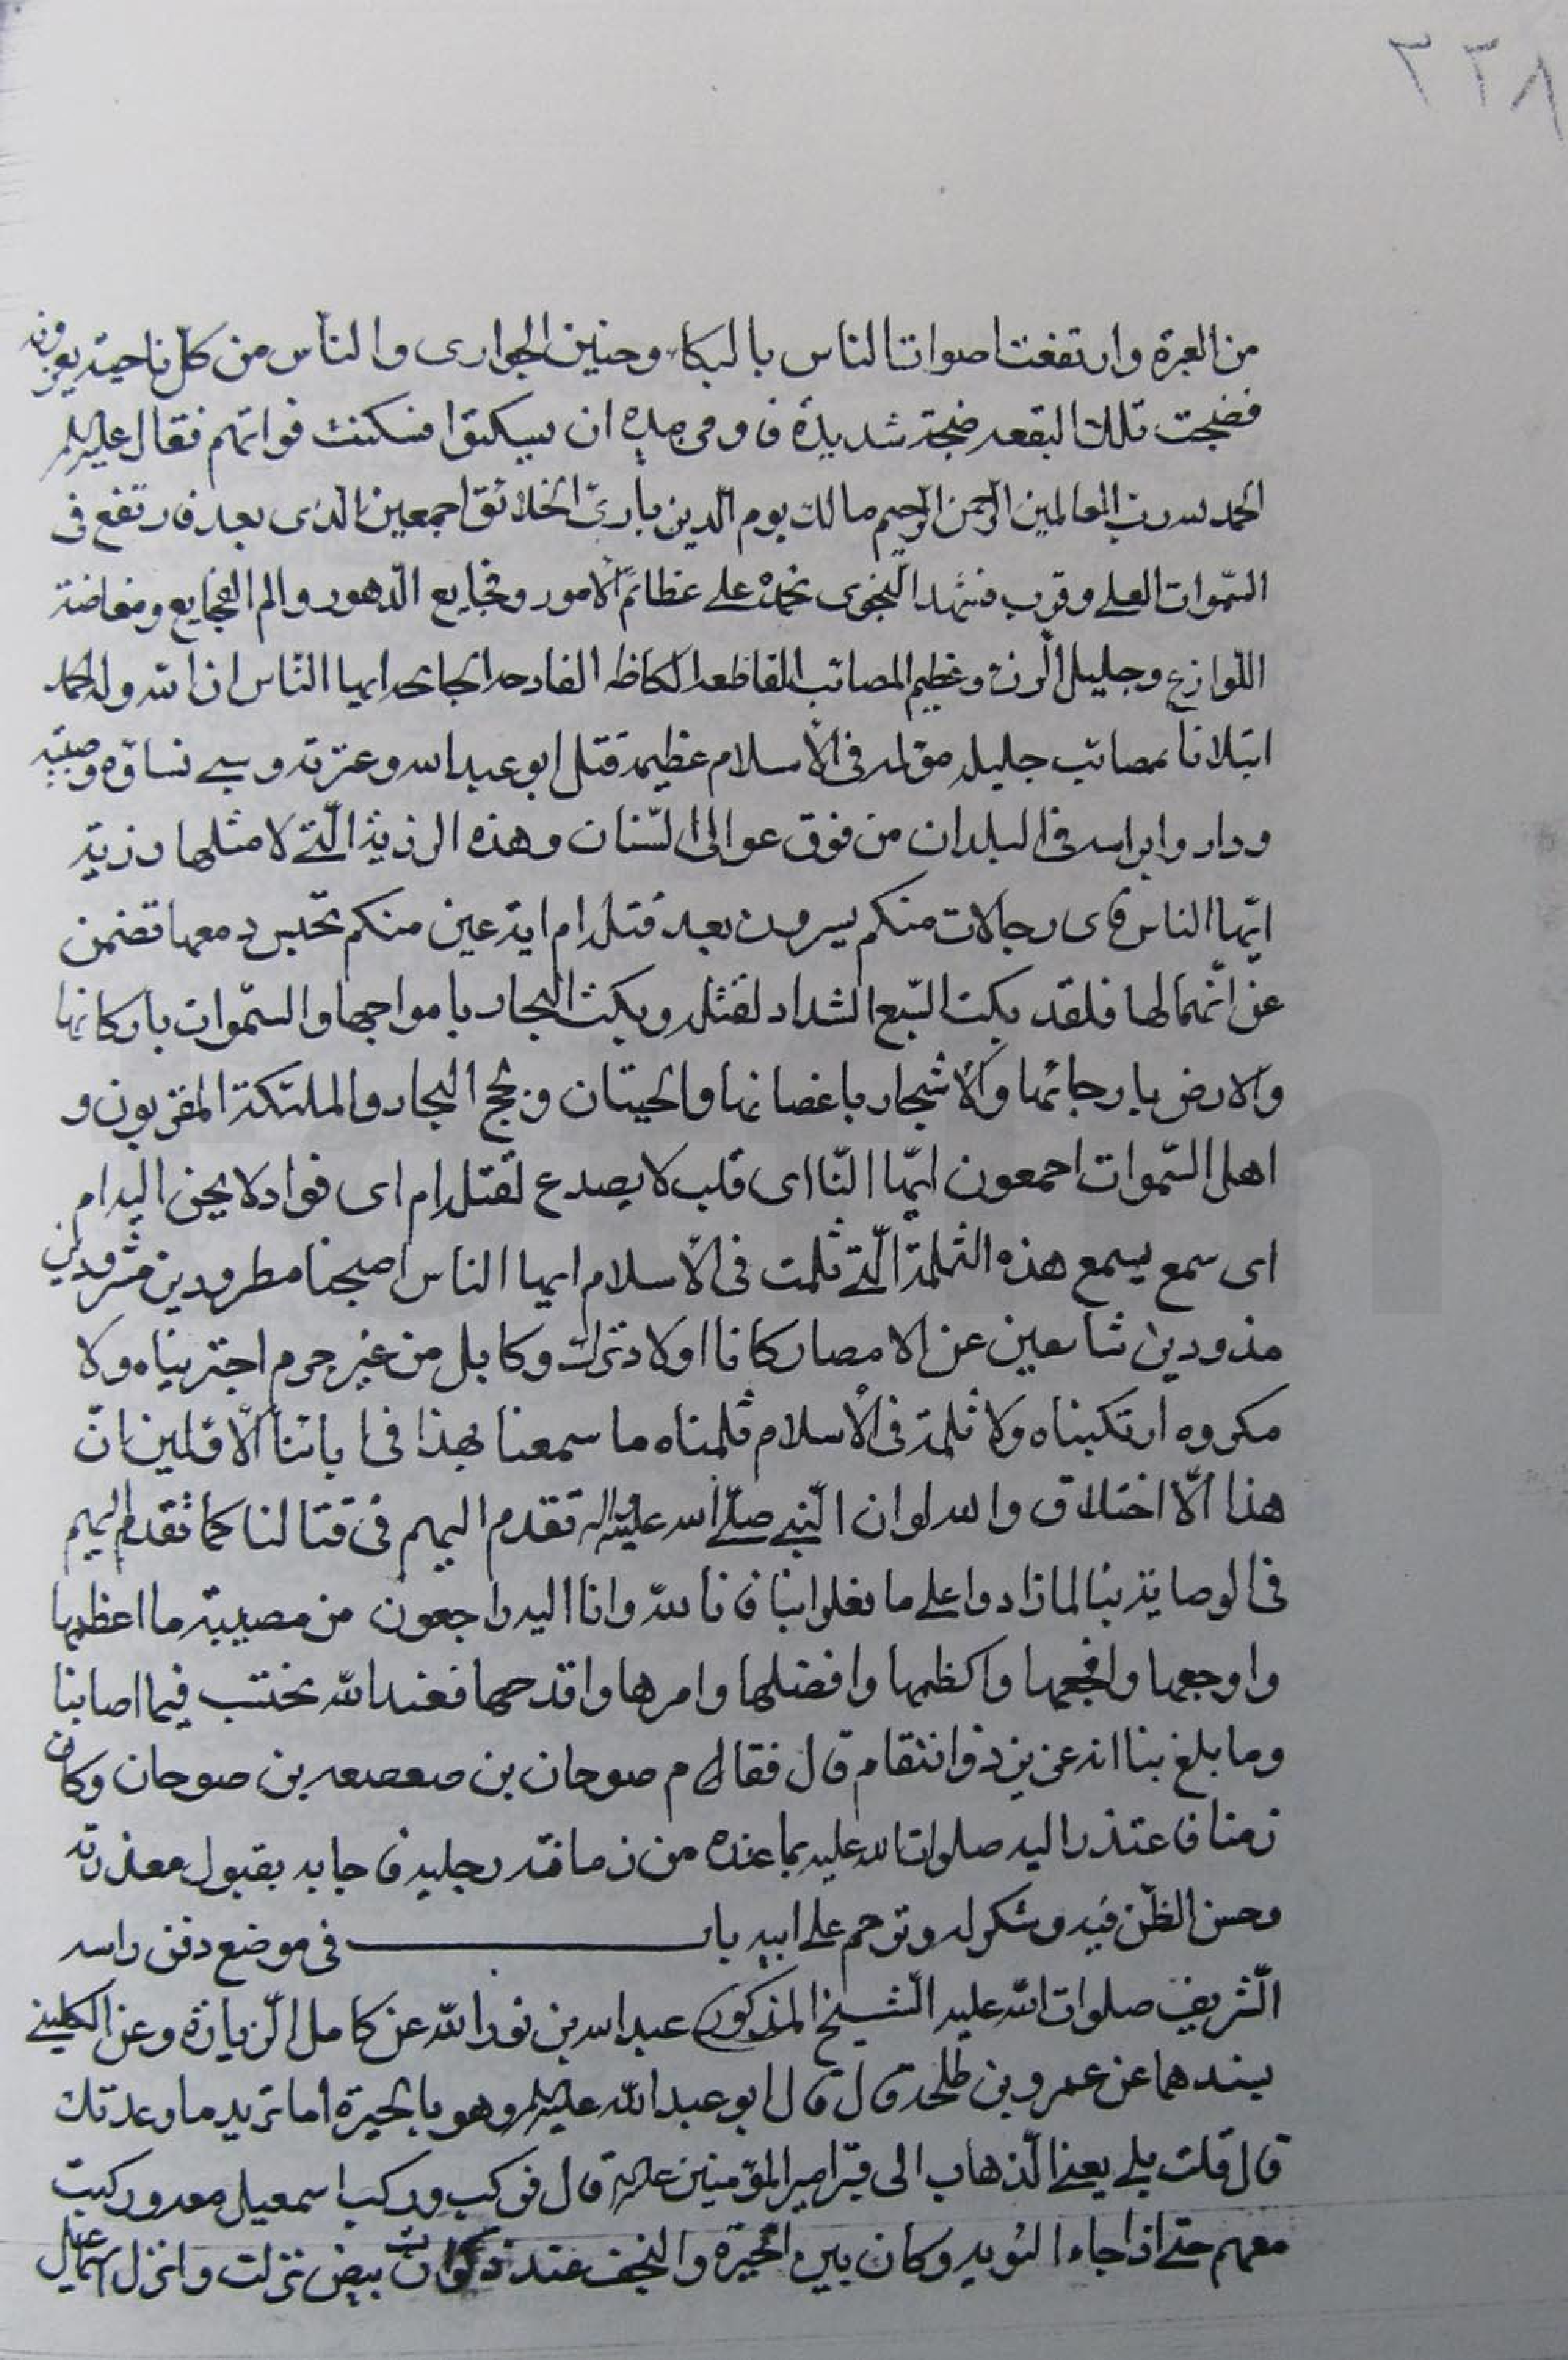 ٢٣٨
من العبرة وارتفعت اصوات الناس بالبكاء وحنين الجوارى والناس من كل ناحية يعزونه
فضجت تلك البقعه ضجة شديدة فاومى بيده ان يسكتوا فسكنت فورتهم فقال عليه السلم
الحمد لله رب العالمين الرحمن الرحيم مالك يوم الدين بارئ الخلائق اجمعين الذى بعد فارتفع فى
السموات العلى وقرب فشهد النجوى نحمده على عظائم الامور وفجايع الدهور والم الفجايع ومضاضة
اللواذع وجليل الرزء وعظيم المصائب الفاظعه الكاظه الفادحه الجائحه ايها الناس ان الله وله الحمد
ابتلانا بمصائب جليله وثلمه فى الاسلام عظيمة قتل ابو عبد الله وعترته وسبى نساؤه وصبيته
ودار وابراسه فى البلدان من فوق عوالى السنان وهذه الرزية التى لا مثلها رزية
ايها الناس فاى رجالات منكم يسرون بعد قتله ام اية عين منكم تحبس دمعها وتضمن
عن انهمالها فلقد بكت السبع الشداد لقتله وبكت البحار بامواجها والسموات باركانها
والارض بارجائها والاشجار باغصانها والحيتان ولجج البحار والملئكة المقربون و
اهل السموات اجمعون ايها النا اى قلب لا يصدع لقتله ام اى فواد لا يحن اليه ام
اى سمع يسمع هذه الثلمة التى ثلمت فى الاسلام ايها الناس اصبحنا مطرودين مشردين
مذودين شاسعين عن الامصار كانا اولاد ترك وكابل من غير جرم اجتريناه ولا
مكروه ارتكبناه ولا ثلمة فى الاسلام ثلمناه ما سمعنا بهذا فى ابائنا الاولين ان
هذا الا اختلاق والله لو ان النبى صلى الله عليه واله تقدم اليهم فى قتالنا كما تقدم اليهم
فى الوصاية بنا لما زادوا على ما فعلوا بنا فانا لله وانا اليه راجعون من مصيبة ما اعظمها
واوجعها وافجعها واكظها وافضلها وامرها وافدحها فعند الله نحتسب فيما اصابنا
وما بلغ بنا انه عزيز ذو انتقام قال فقام صوحان بن صعصعه بن صوحان وكان
زمنا فاعتذر اليه صلوات الله عليه بما عنده من زمانة رجليه فاجابه بقبول معذرته
وحسن الظن فيه وشكر له وترحم على ابيه باب فى موضع دفن راسه
الشريف صلوات الله عليه الشيخ المذكور عبد الله بن نور الله عن كامل الزيارة وعن الكلينى
بسندهما عن عمرو بن طلحة قال قال ابو عبد الله عليه السلم وهو بالحيرة اما تريد ما وعدتك
قال قلت بلى يعنى الذهاب الى قبر امير المؤمنين عليه السلم قال فركب وركب اسمعيل معه وركبت
معهم حتى اذا جاء الثويه وكان بين الحيرة والنجف عند ذكوات بيض نزلت وانزل اسماعيل